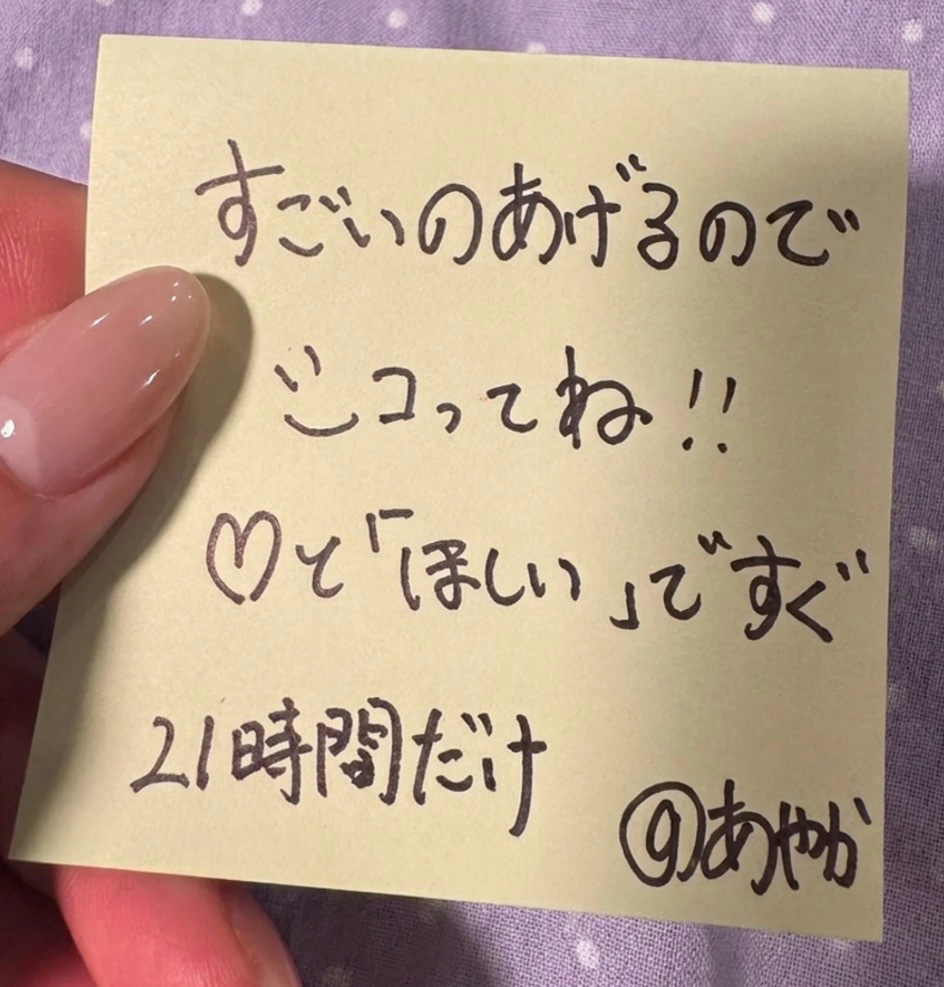 すごいのあげるので
シコってね!!
♡と「ほしい」ですぐ
21時間だけ
@あやか